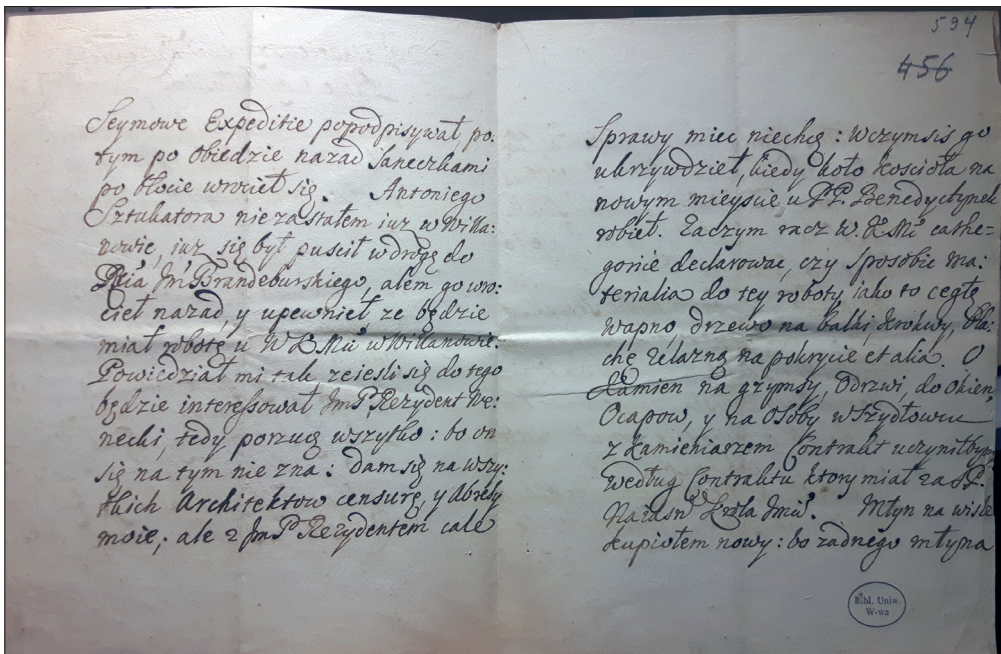 Seymowe Expeditie popodpisywał, po:
tym po obiedzie nazad Saneczkami
po błocie wrocieł się. Antoniego
Sztukatora nie zastałem iuz w Willa:
nowie, iuz się był puscił w drogę do
Brandeburskiego, alem go wro:
cieł nazad, y upewnieł ze będzie
miał robotę u W Willanowie.
Powiedział mi tak, zeiesli się do tego
będzie interessował JmP Rezydent We:
necki, tedy porzucę wszytko: bo on
się na tym nie zna: dam się na wszy:
tkich Architektow censurę, y Abrysy
moie, ale z JmP Rezydentem cale
594
456
Sprawy miec niechcę: Wczymsis go
ukrzywdzieł, kiedy koło koscioła na
nowym mieyscie u PP. Benedyctynek
robieł. Zaczym racz W. K Mć cathe=
goricè declarowac, czy Sposobic ma:
terialia do tey roboty, iako to cegłę
wapno, drzewo na balki, krokwy, Bla:
chę zelazną na pokrycie et alia. O
Kamien na gzymsy, Odrzwi, do Okien,
Ocapow, y na Osoby w Szydłowcu
z Kamieniarzem Contrakt uczyniłbym
według Contraktu ktory miał za
Młyn na wisle
kupiołem nowy: bo zadnego młyna
Bibl. Uniw.
W-wa